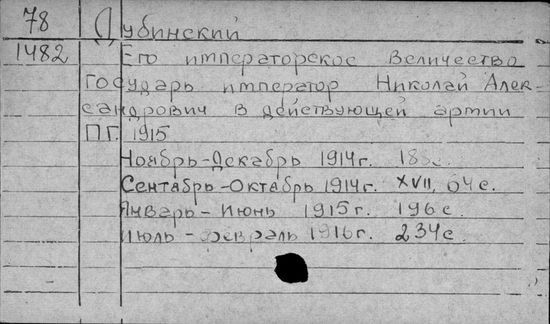 78 Дубинский
1482 Его императорское Величество
Государь император Николай Алек-
сандрович в действующей армии
П.Г. 1915
Ноябрь-Декабрь 1914г.
Сентябрь-Октябрь 1914г. XVII, 64с.
Январь-Июнь 1915г. 196с.
Июль-февраль 1916г. 234с.